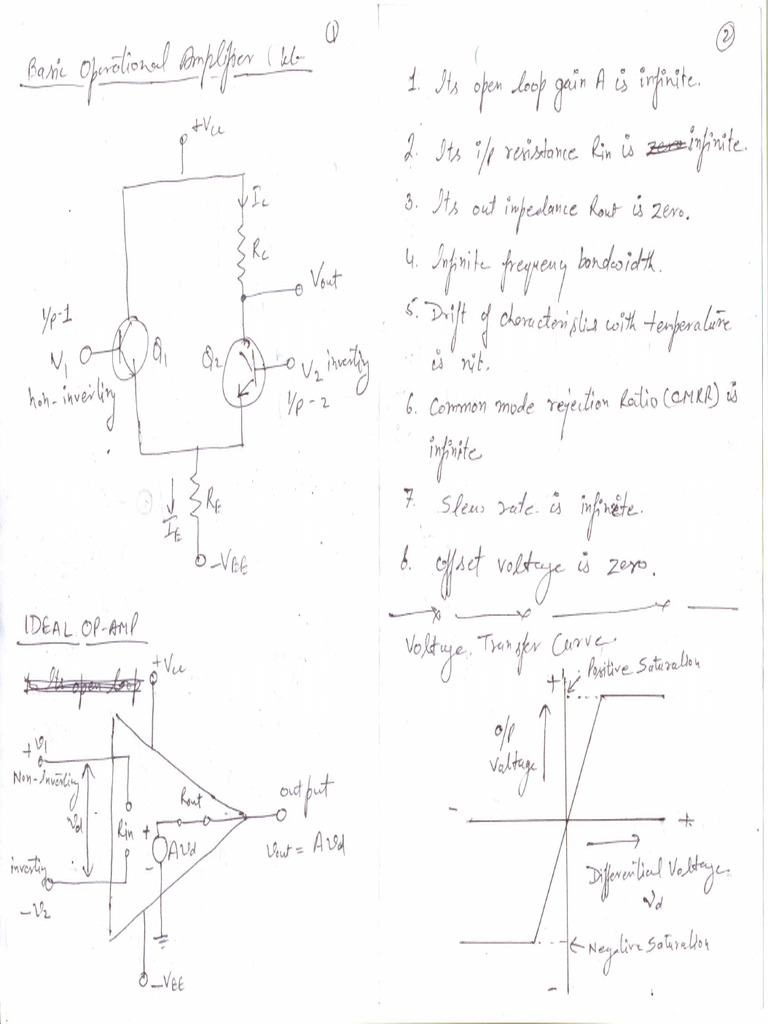 1
Basic Operational Amplifier
+Vcc
Ic
Rc
Vout
I/p-1
V1
non-inverting
Q1
Q2
V2 inverting
I/p-2
RE
IE
-VEE
IDEAL OP-AMP
Its open loop
+Vcc
+V1
Non-Inverting
Vd
Rin
Rout
+
AVd
-
output
Vout = AVd
inverting
-V2
-VEE
2
1. Its open loop gain A is infinite.
2. Its i/p resistance Rin is zero infinite.
3. Its out impedance Rout is zero.
4. Infinite frequency bandwidth.
5. Drift of characteristics with temperature
is nit.
6. Common mode rejection Ratio (CMRR) is
infinite
7. Slew rate is infinite.
8. offset voltage is zero.
Voltage Transfer Curve.
+
Positive Saturation
o/p
Voltage
-
+
Differential Voltage
Vd
Negative Saturation
-